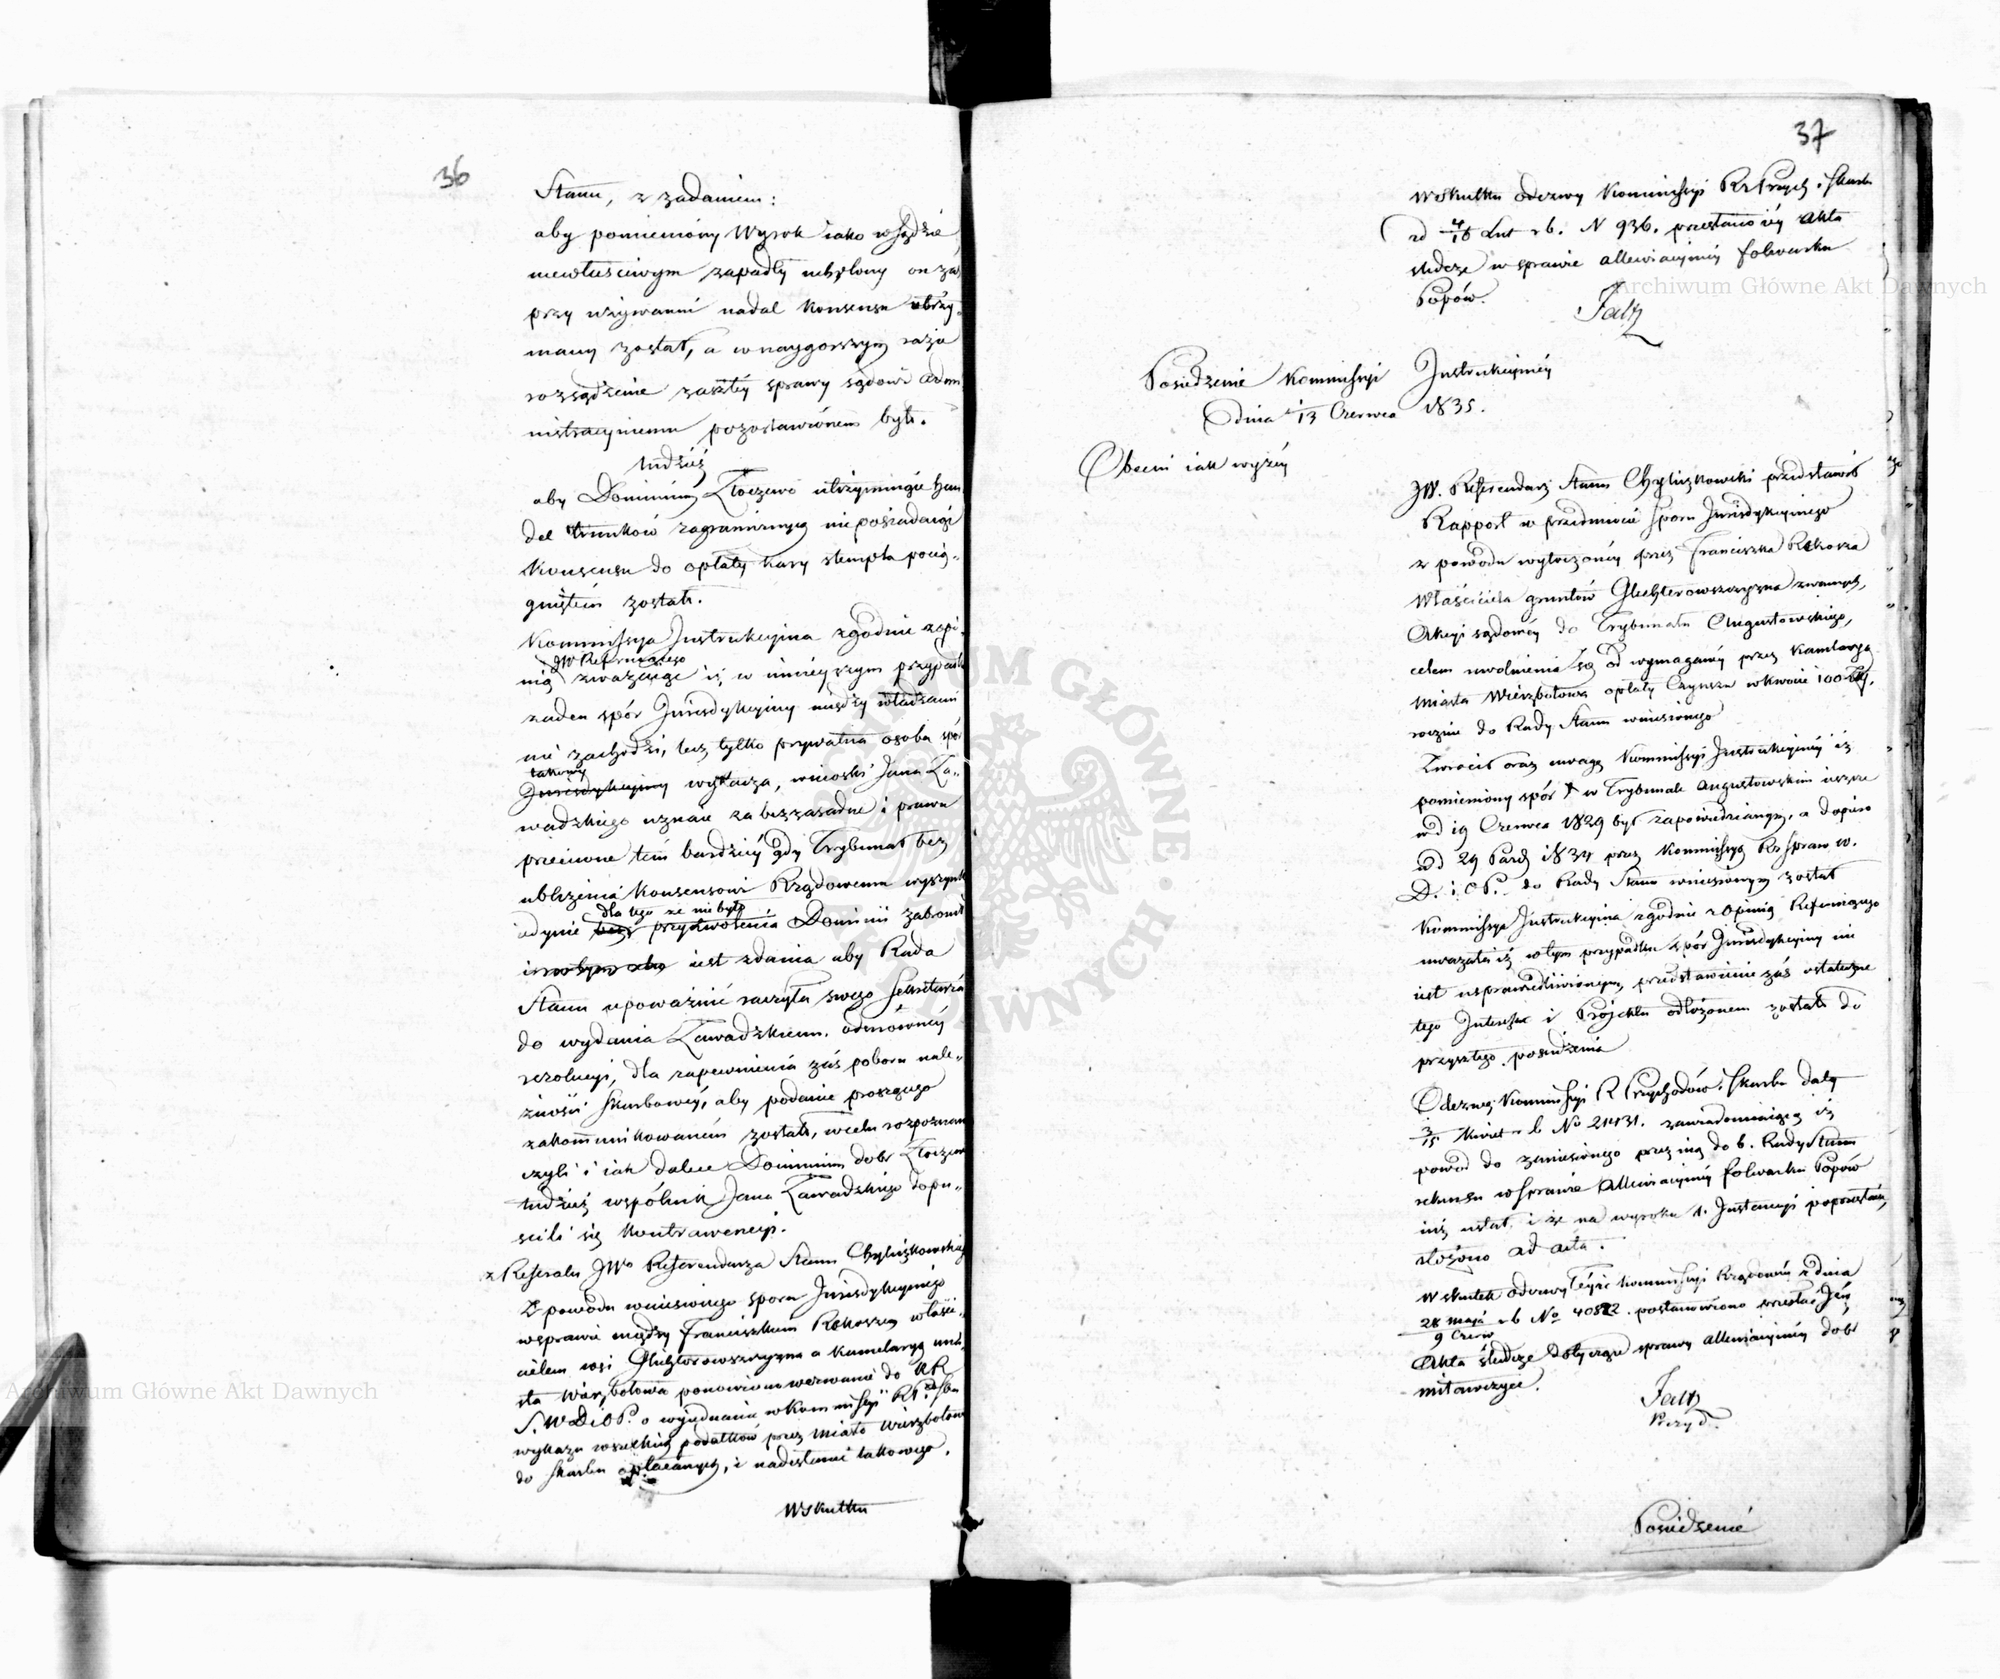 36
Stanu, z żądaniem:
aby pomieniony Wyrok iako w Sądzie
niewłaściwym zapadły uchylony on zaś
przy używaniu nadal Konsensu utrzy-
many został, a w naygorszym razie
rozsądzenie zaszłéy sprawy sądowi Admi
nistracyinemu pozostawionem było.
tudzież
aby Dominium Złoczewo utrzymuiące han
del trunków zagranicznych nie posiadaiąc
Konsensu do opłaty kary stempla pocią-
gniętem zostało.
Kommissya Instrukcyina zgodnie z opi-
JW Referuiącego
nią zważaiąc iż w ninieyszym przypadku
żaden spór Jurisdykcyiny między władzami
nie zachodzi, lecz tylko prywatna osoba spór
takowy
Jurisdykcyiny wytacza, wnioski Jana Za-
wadzkiego uznaie za bezzasadne i prawu
przeciwne tém bardziéy gdy Trybunał bez
ubliżenia Konsensowi Rządowemu wyszynk
dla tego że nie było
iedynie bez przyzwolenia Dominii zabronił
iest zdania aby Rada
Stanu upoważnić raczyła swego Sekretarza
do wydania Zawadzkiemu odmownéy
rezolucyi, dla zapewnienia zaś poboru nale-
żności Skarbowéy, aby podanie proszącego
zakommunikowaném zostało, w celu rozpoznania
czyli i iak dalece Dominium dóbr Złoczew
tudzież wspólnik Jana Zawadzkiego dopu-
ścili się Kontrawencyi.
z Referatu JWo Referendarza Stanu Chyliczkowskiego
Z powodu wniesionego sporu Jurisdykcyinego
w sprawie między Franciszkiem Rokoszem właści-
cielem wsi Gluchterowszczyzna a Kamelaryą mia-
sta Wierzbołowa ponowiono wezwanie do KR
S.W.D. i O.P. o wyiednanie w Kommissyi RP i Sbu
wykazu wszelkich podatków przez Miasto Wierzbołów
do Skarbu opłacanych, i nadesłanie takowego.
Wskutku
37
Wskutku odezwy Kommissyi RzPrzych. i Skarbu
zd 4/16 Lut rb. N 936. przesłano iéy Akta
śledcze w sprawie allewiacyinéy folwarku
Popów.
Faltz
Posiedzenie Kommissyi Instrukcyinéy
Dnia 1/13 Czerwca 1835.
Obecni iak wyżéy
JW. Referendarz Stanu Chyliczkowski przedstawił
Rapport w przedmiocie sporu Jurisdykcyinego
z powodu wytoczonéy przez Franciszka Rokosza
Właściciela gruntów Gluchterowszczyzna zwanych,
Akcyi sądowéy do Trybunału Augustowskiego,
celem uwolnienia się od wymaganéy przez Kamelaryą
miasta Wierzbołowa opłaty Czynszu w kwocie 100 Złt.
rocznie do Rady Stanu wniesionego
Zwrócił oraz uwagę Kommissyi Instrukcyinéy iż
pomieniony spór w Trybunale Augustowskim ieszcze
w d 19 Czerwca 1829 był zapowiedzianym, a dopiero
w d 29 Paźd 1834 przez Kommissyą Rz Spraw W.
D. i O P. do Rady Stanu wniesionym został
Kommissya Instrukcyina zgodnie z Opinią Referuiącego
uważała iż w tym przypadku spór Jurisdykcyiny nie
iest usprawiedliwionym, przedstawienie zaś ostateczne
tego Interessu i Proiektu odłożonem zostało do
przyszłego posiedzenia
Odezwę Kommissyi R Przychodów i Skarbu daty
3/15 Kwiet rb No 21431. zawiadomiaiącą iż
powód do zaniesionego przez nią do b. Rady Stanu
rekursu w Sprawie Allewiacyinéy folwarku Popów
iuż ustał i że na wyroku 1. Instancyi poprzestaie,
złożono ad acta.
W skutek odezwy téyże Kommissyi Rządowéy z dnia
28 Maja / 9 Czerw rb No 40822. postanowiono przesłać Jéy
Akta śledcze dotyczące sprawy allewiacyinéy dóbr
Mitawczyce.
Faltz
Prezyd.
Posiedzenie
Archiwum Główne Akt Dawnych
Archiwum Główne Akt Dawnych
ARCHIWUM GŁÓWNE AKT DAWNYCH